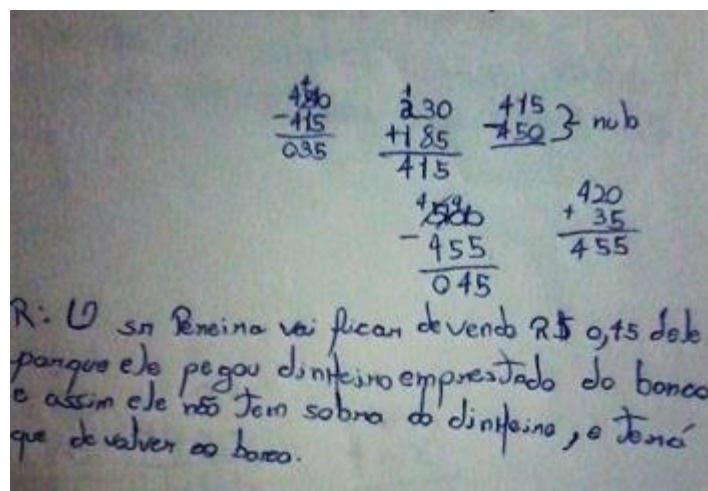 450
-415
035
230
+185
415
415
-450 } nub
500
-455
045
420
+ 35
455
R: O sr Pereira vai ficar devendo R$ 0,45 dele
porque ele pegou dinheiro emprestado do banco
e assim ele não tem sobra do dinheiro, e terá
que devolver ao banco.